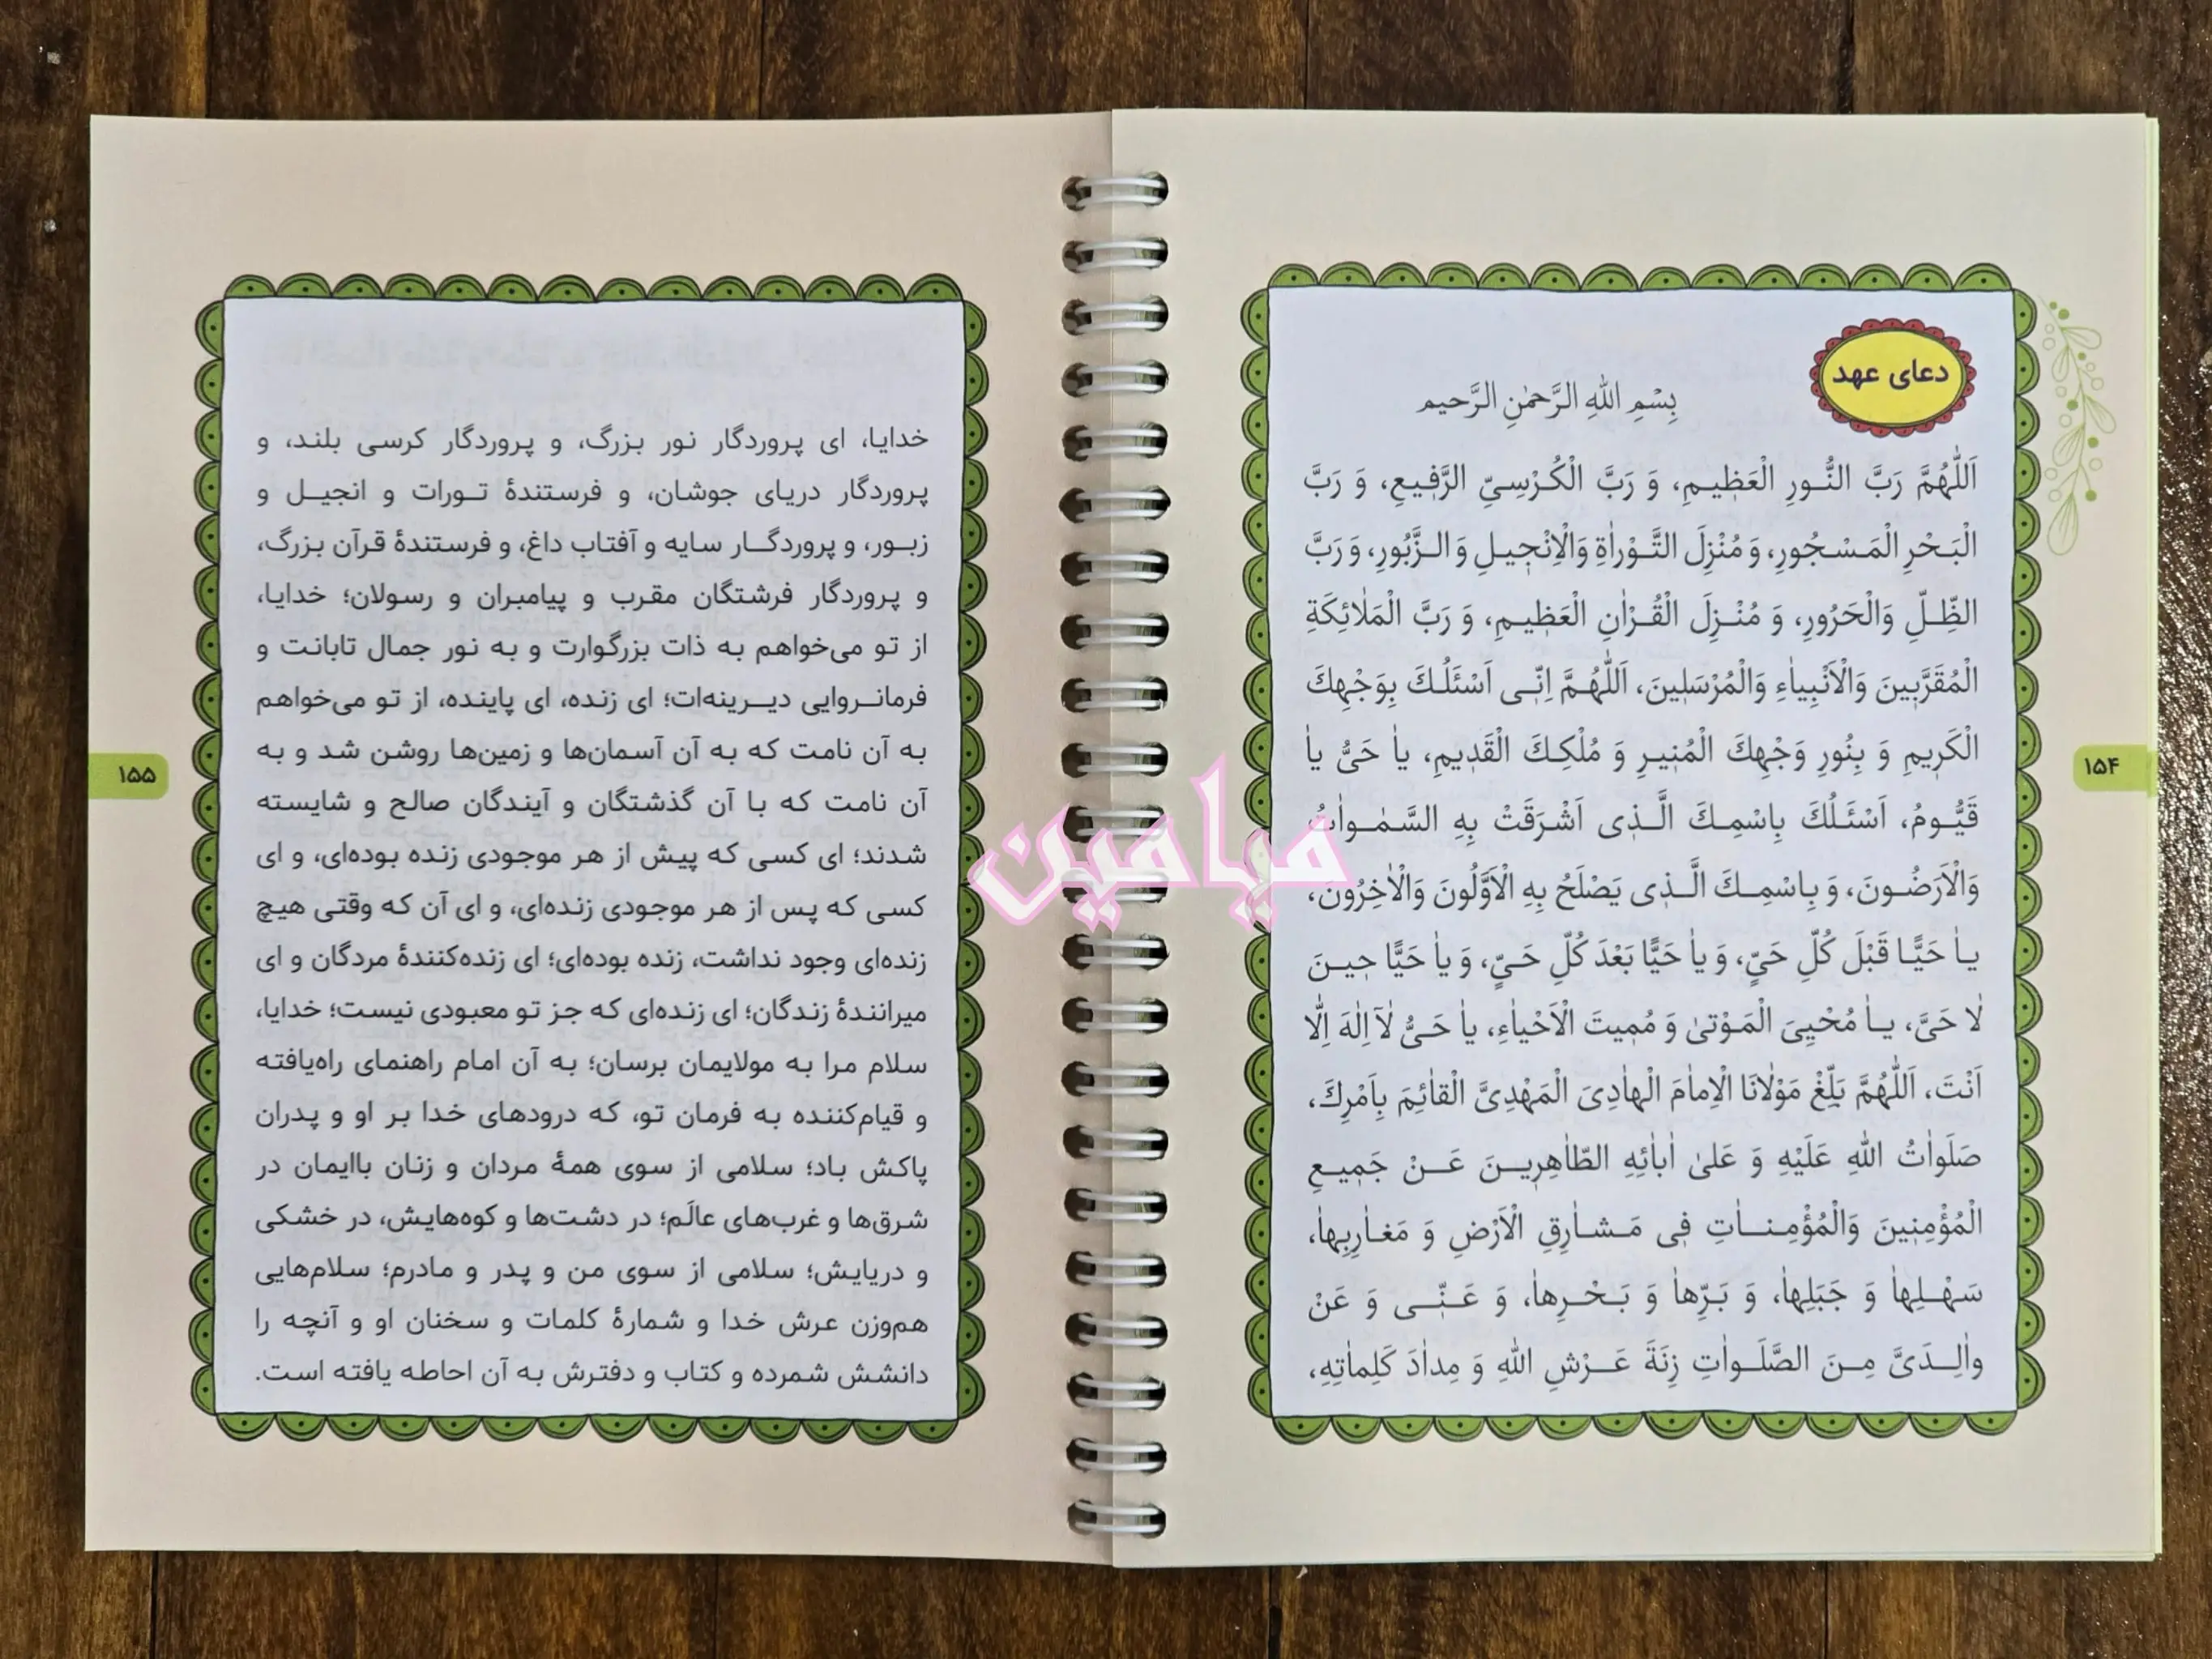 دعای عهد
بِسْمِ اللهِ الرَّحمٰنِ الرَّحیم
اَللّٰهُمَّ رَبَّ النُّورِ الْعَظیمِ، وَ رَبَّ الْكُرْسِیِّ الرَّفیعِ، وَ رَبَّ
الْبَحْرِ الْمَسْجُورِ، وَ مُنْزِلَ التَّوْراٰةِ وَالْاِنْجیلِ وَ الزَّبُورِ، وَ رَبَّ
الظِّلِّ وَالْحَرُورِ، وَ مُنْزِلَ الْقُرْاٰنِ الْعَظیمِ، وَ رَبَّ الْمَلاٰئِكَةِ
الْمُقَرَّبینَ وَالْاَنْبِیاٰءِ وَالْمُرْسَلینَ، اَللّٰهُمَّ اِنّی اَسْئَلُكَ بِوَجْهِكَ
الْكَریمِ وَ بِنُورِ وَجْهِكَ الْمُنیرِ وَ مُلْكِكَ الْقَدیمِ، یاٰ حَیُّ یاٰ
قَیُّومُ، اَسْئَلُكَ بِاسْمِكَ الَّذی اَشْرَقَتْ بِهِ السَّمٰواٰتُ
وَالْاَرَضُونَ، وَ بِاسْمِكَ الَّذی یَصْلَحُ بِهِ الْاَوَّلُونَ وَالْاٰخِرُونَ،
یاٰ حَیًّا قَبْلَ كُلِّ حَیٍّ، وَ یاٰ حَیًّا بَعْدَ كُلِّ حَیٍّ، وَ یاٰ حَیًّا حینَ
لاٰ حَیَّ، یاٰ مُحْیِیَ الْمَوْتیٰ وَ مُمیتَ الْاَحْیاٰءِ، یاٰ حَیُّ لاٰۤ اِلٰهَ اِلّاٰ
اَنْتَ، اَللّٰهُمَّ بَلِّغْ مَوْلاٰنَا الْاِماٰمَ الْهاٰدِیَ الْمَهْدِیَّ الْقاٰئِمَ بِاَمْرِكَ،
صَلَواٰتُ اللهِ عَلَیْهِ وَ عَلیٰ اٰباٰئِهِ الطّاٰهِرینَ عَنْ جَمیعِ
الْمُؤْمِنینَ وَالْمُؤْمِناٰتِ فی مَشاٰرِقِ الْاَرْضِ وَ مَغاٰرِبِهاٰ،
سَهْلِهاٰ وَ جَبَلِهاٰ، وَ بَرِّهاٰ وَ بَحْرِهاٰ، وَ عَنّی وَ عَنْ
واٰلِدَیَّ مِنَ الصَّلَواٰتِ زِنَةَ عَرْشِ اللهِ وَ مِداٰدَ كَلِماٰتِهِ،
۱۵۴
خدایا، ای پروردگار نور بزرگ، و پروردگار کرسی بلند، و
پروردگار دریای جوشان، و فرستندهٔ تورات و انجیل و
زبور، و پروردگار سایه و آفتاب داغ، و فرستندهٔ قرآن بزرگ،
و پروردگار فرشتگان مقرب و پیامبران و رسولان؛ خدایا،
از تو می‌خواهم به ذات بزرگوارت و به نور جمال تابانت و
فرمانروایی دیرینه‌ات؛ ای زنده، ای پاینده، از تو می‌خواهم
به آن نامت که به آن آسمان‌ها و زمین‌ها روشن شد و به
آن نامت که با آن گذشتگان و آیندگان صالح و شایسته
شدند؛ ای کسی که پیش از هر موجودی زنده بوده‌ای، و ای
کسی که پس از هر موجودی زنده‌ای، و ای آن که وقتی هیچ
زنده‌ای وجود نداشت، زنده بوده‌ای؛ ای زنده‌کنندهٔ مردگان و ای
میرانندهٔ زندگان؛ ای زنده‌ای که جز تو معبودی نیست؛ خدایا،
سلام مرا به مولایمان برسان؛ به آن امام راهنمای راه‌یافته
و قیام‌کننده به فرمان تو، که درودهای خدا بر او و پدران
پاکش باد؛ سلامی از سوی همهٔ مردان و زنان باایمان در
شرق‌ها و غرب‌های عالَم؛ در دشت‌ها و کوه‌هایش، در خشکی
و دریایش؛ سلامی از سوی من و پدر و مادرم؛ سلام‌هایی
هم‌وزن عرش خدا و شمارهٔ کلمات و سخنان او و آنچه را
دانشش شمرده و کتاب و دفترش به آن احاطه یافته است.
۱۵۵
میامین